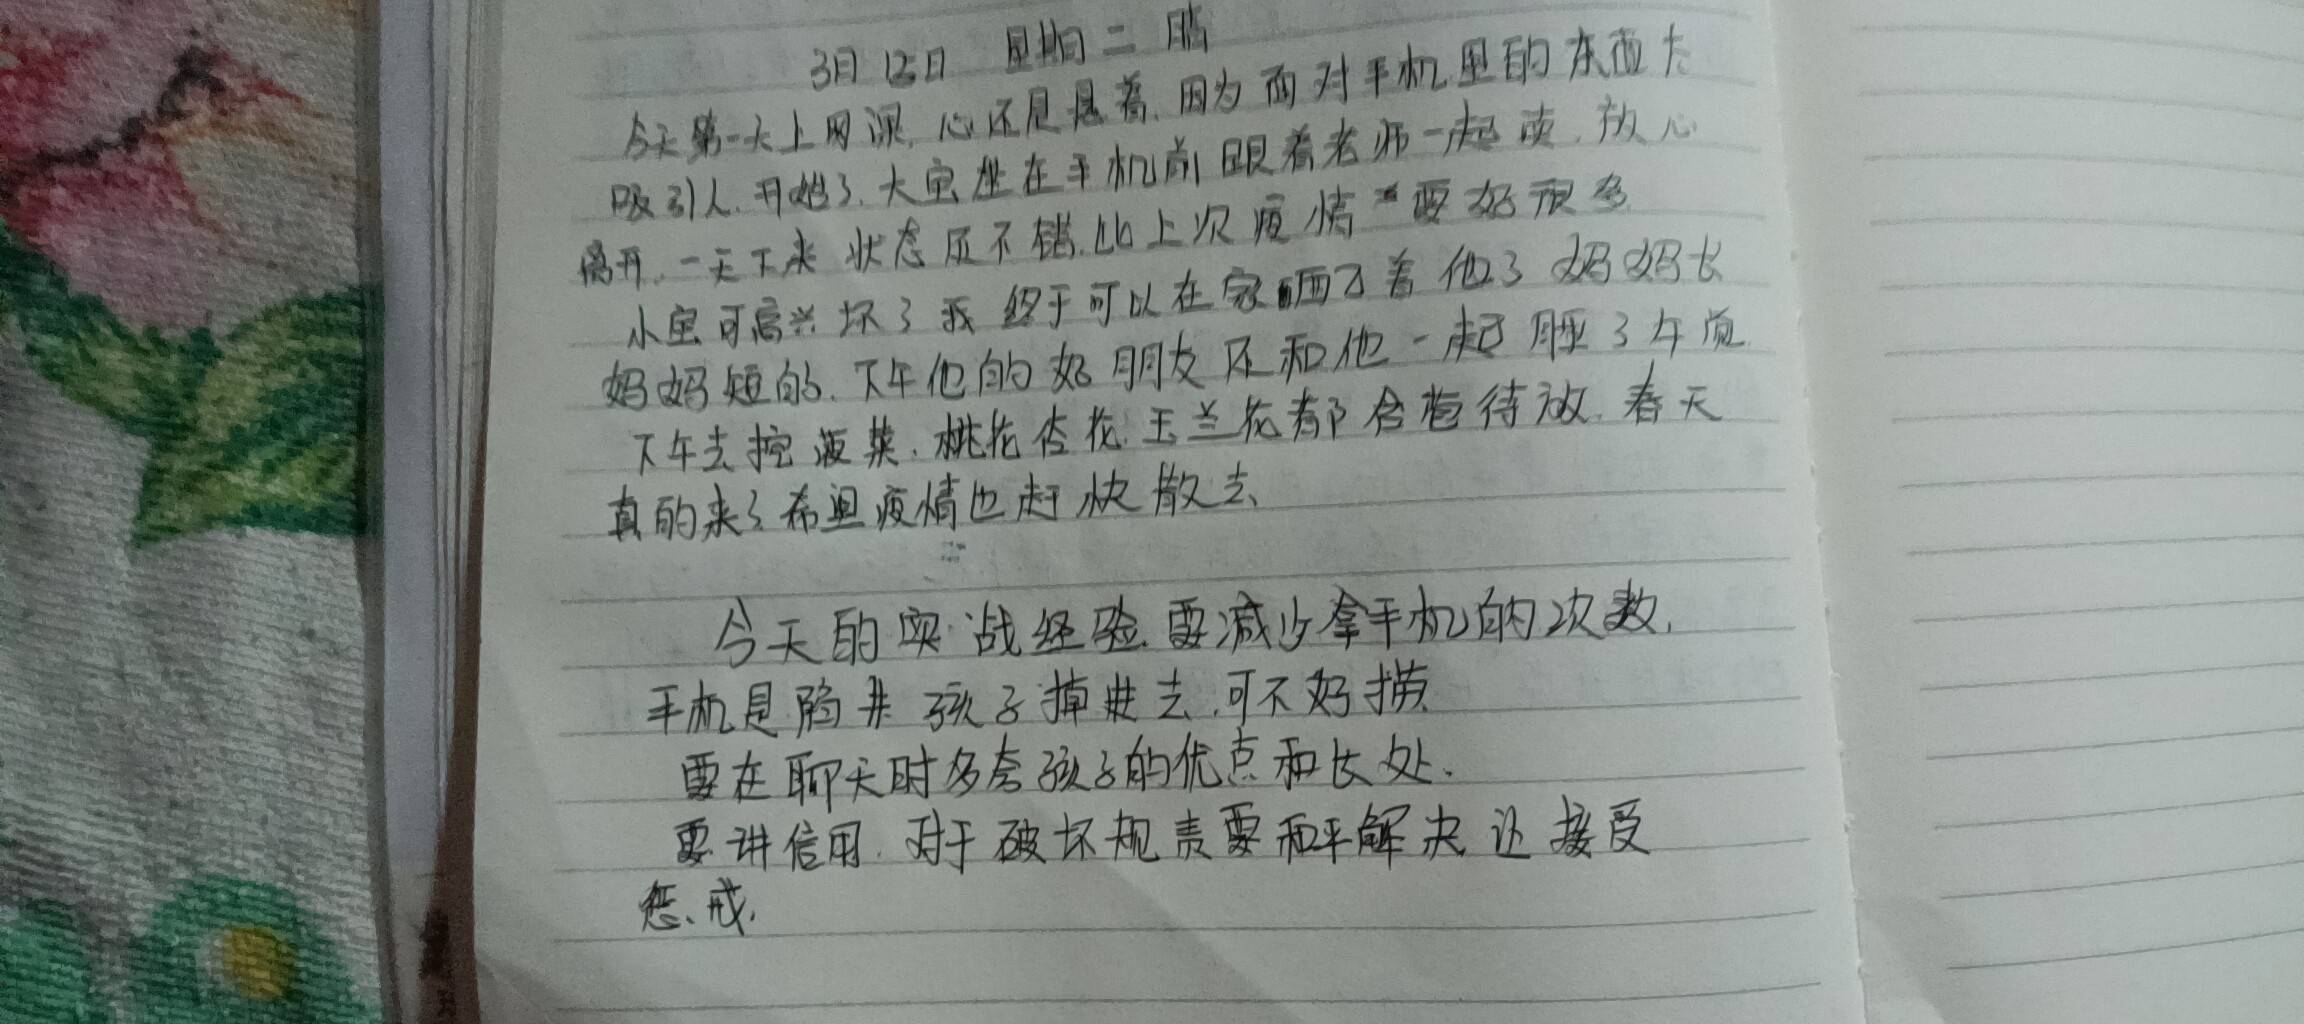 3月15日 星期二 晴
今天第一天上网课,心还是悬着,因为面对手机里的东西太
吸引人,开始了,大宝坐在手机前跟着老师一起读,放心
离开,一天下来 状态还不错,比上次疫情 要好很多
小宝可高兴坏了我终于可以在家 着他了 妈妈长
妈妈短的,下午他的好朋友还和他一起睡了午觉
下午去挖菠菜,桃花杏花,玉兰花都含苞待放,春天
真的来了希望疫情也赶快散去、
今天的实战经验,要减少拿手机的次数,
手机是陷井 孩子掉进去,可不好捞
要在聊天时多夸孩子的优点和长处、
要讲信用,对于破坏规责要和平解决 让接受
惩、戒,